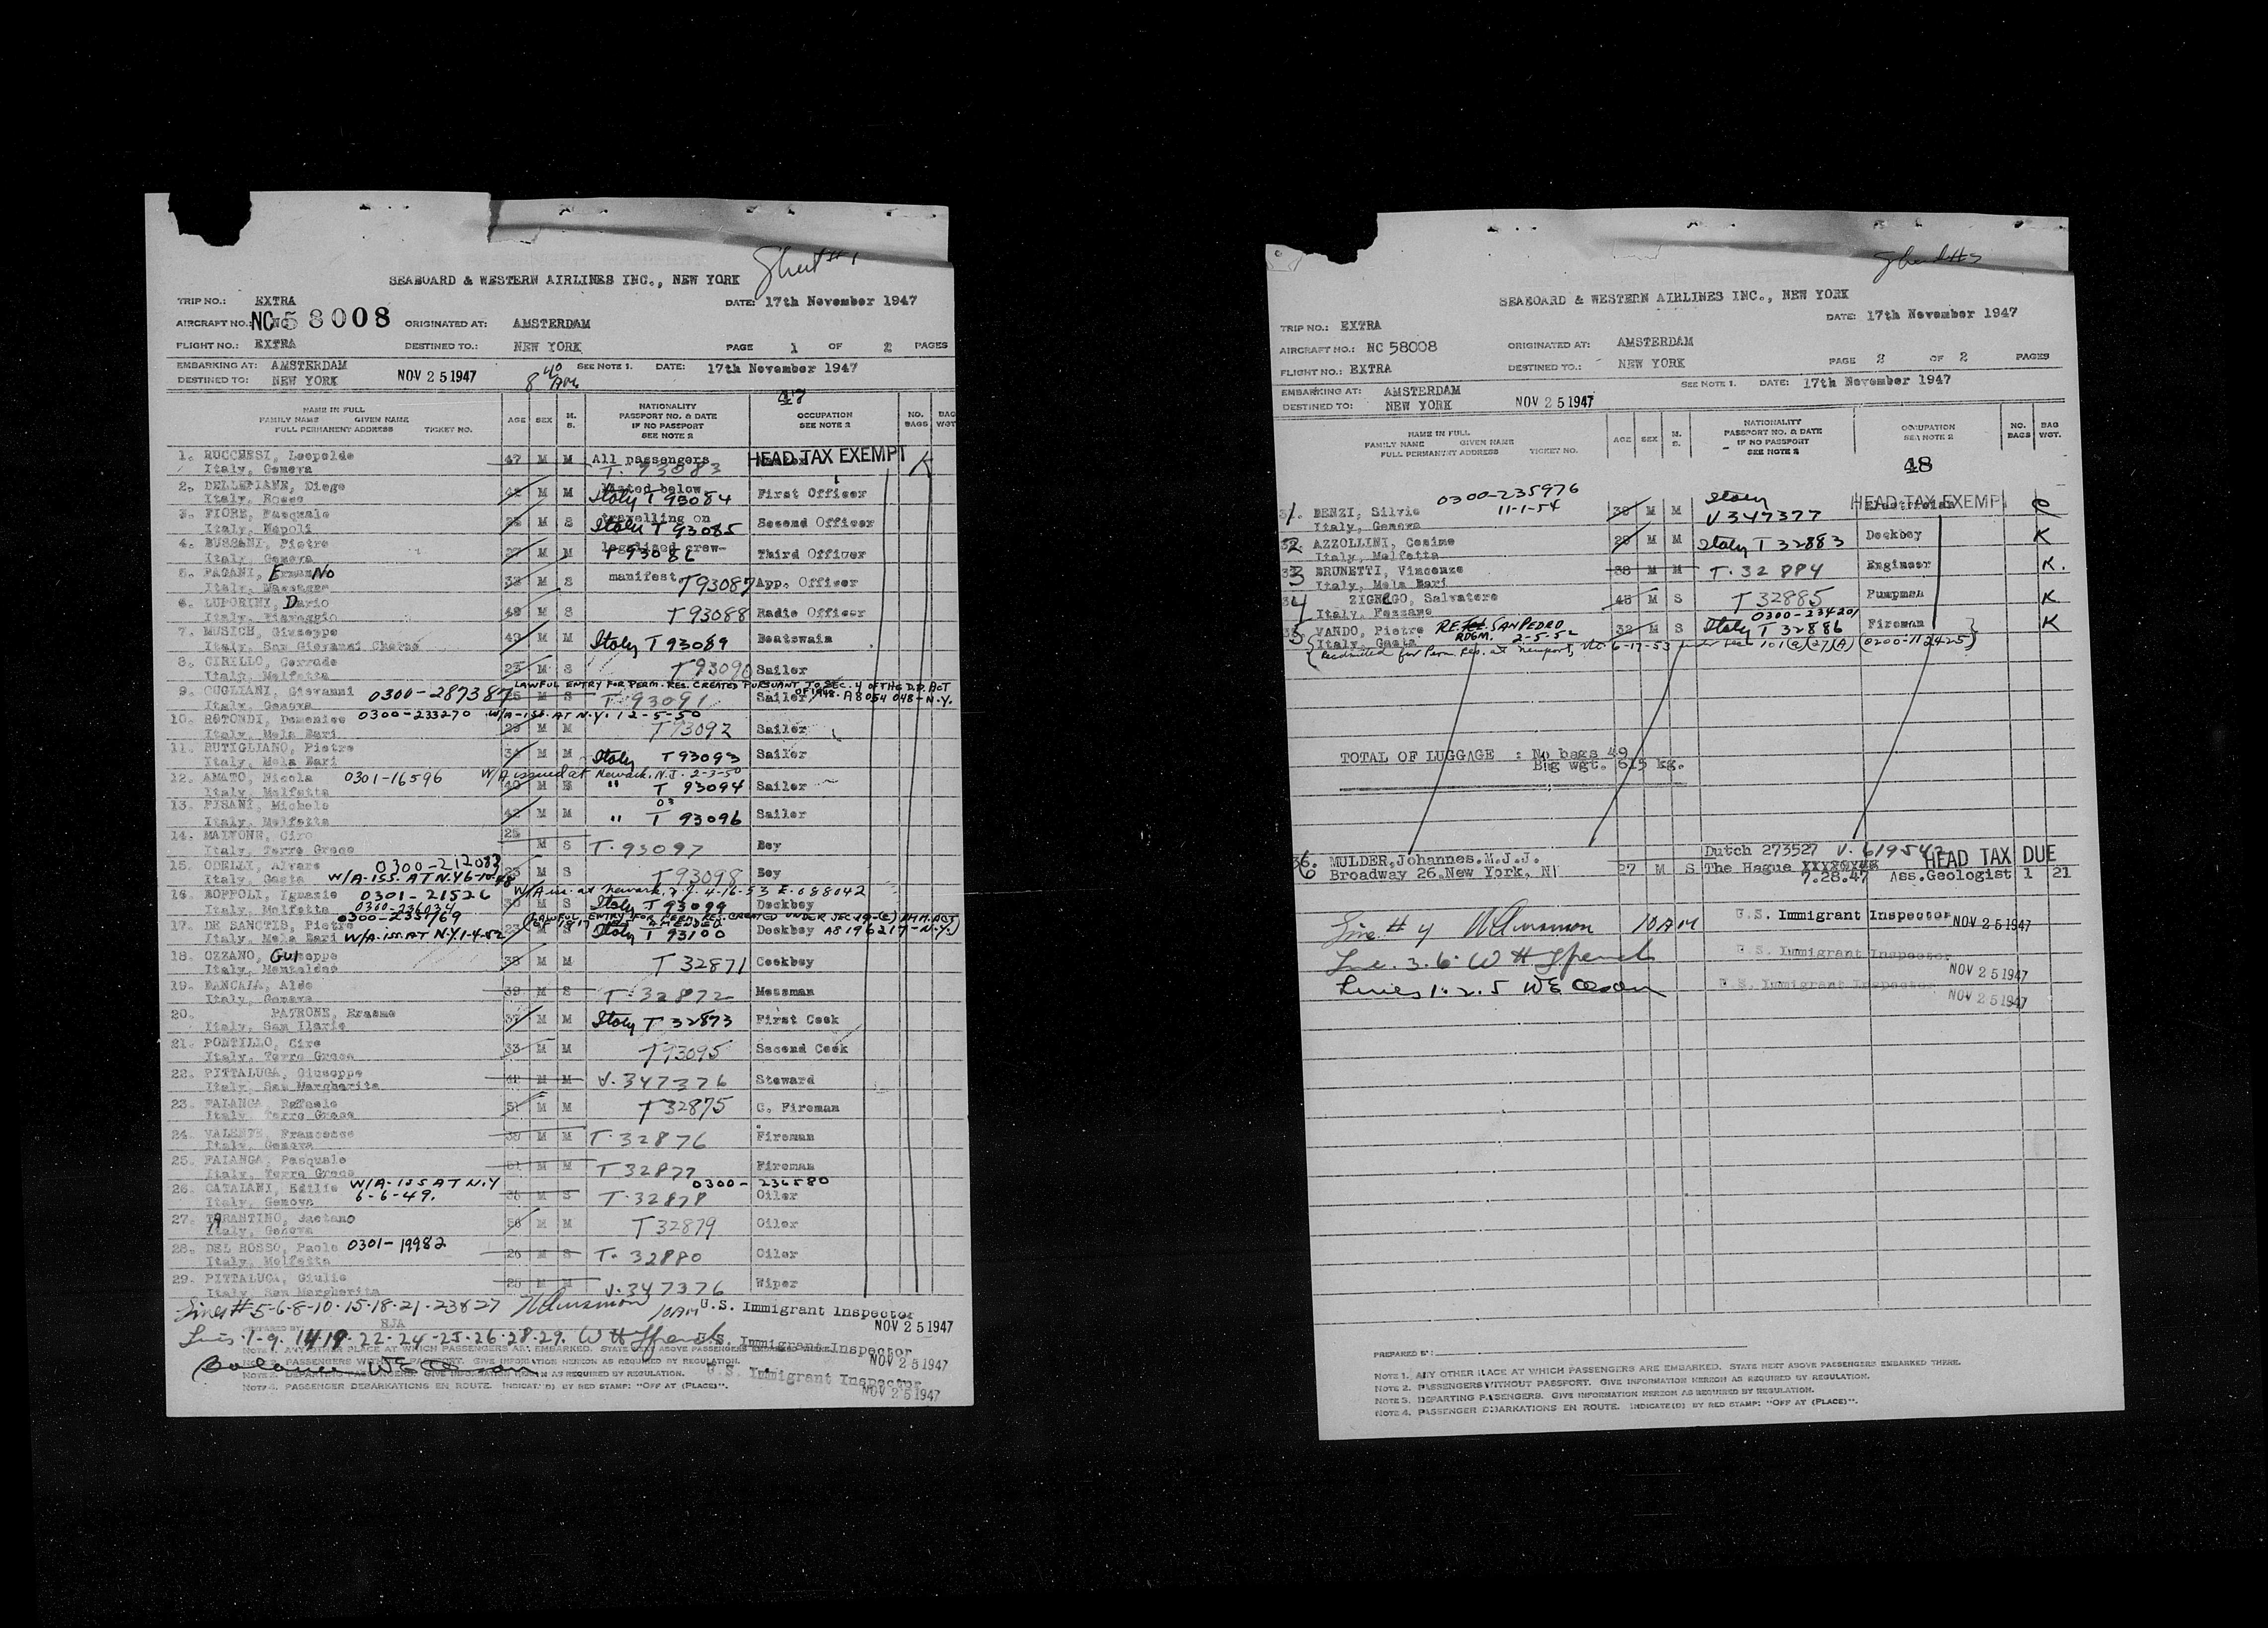 Sheet #1
SEABOARD & WESTERN AIRLINES INC., NEW YORK
TRIP NO.: EXTRA DATE: 17th November 1947
AIRCRAFT NO.: NC 58008 ORIGINATED AT: AMSTERDAM
FLIGHT NO.: EXTRA DESTINED TO.: NEW YORK PAGE 1 OF 2 PAGES
EMBARKING AT: AMSTERDAM SEE NOTE 1. DATE: 17th November 1947
DESTINED TO: NEW YORK NOV 25 1947 8 40 AM
47
NAME IN FULL
FAMILY NAME GIVEN NAME
FULL PERMANENT ADDRESS TICKET NO.
AGE SEX M. S.
NATIONALITY
PASSPORT NO. & DATE
IF NO PASSPORT
SEE NOTE 2
OCCUPATION
SEE NOTE 2
NO. BAGS BAG WGT.
1. RUCCHESI, Leopoldo 47 M M All passengers HEAD TAX EXEMPT K
Italy, Genova T. 93083
2. DELLEPIANE, Diego 42 M M listed below First Officer
Italy, Rosso Italy T 93084
3. FIORE, Pasquale M S travelling on Second Officer
Italy, Napoli Italy T 93085
4. BUSSANI, Pietro 27 M M legalised crew- Third Officer
Italy, Genova T 93086
5. PAGANI, ErmanNo 32 M S manifest T93087 App. Officer
Italy,
6. LUPORINI, Dario 49 M S T93088 Radio Officer
Italy, Viareggio
7. MUSICH, Giuseppe 49 M M Italy T 93089 Boatswain
Italy, San Giovanni
8. CIRILLO, Corrado 23 M S T 93090 Sailor
Italy, Molfetta
LAWFUL ENTRY FOR PERM. RES. CREATED PURSUANT TO SEC. 4 OF THE D.P. ACT
9. CUGLIANI, Giovanni 0300-287387 M S T. 93091 Sailor OF 1948. A8054 048-N.Y.
Italy, Genova
10. ROTONDI, Domenico 0300-233270 W/A-ISS. AT N.Y. 12-5-50
Italy, Mola Bari 29 M M T 93092 Sailor
11. RUTIGLIANO, Pietro 34 M M Italy T 93093 Sailor
Italy, Mola Bari
12. AMATO, Nicola 0301-16596 W/A issued at Newark, N.J. 2-3-50
Italy, Molfetta 40 M M " T 93094 Sailor
13. PISANI, Michele 42 M M " T 93096 Sailor
Italy, Molfetta
14. MAIYONE, Ciro 25 M S T. 93097 Boy
Italy, Torre Greco
15. ODELLI, Alvaro 0300-212083 23 M S T 93098 Boy
Italy, Gaeta W/A-ISS. AT N.Y.
16. ROPPOLI, Ignazio 0301-21526 W/A iss. at Newark, N.J. 4-16-53 E-088042
Italy, Molfetta 0300-236034 30 M S Italy T 93099 Deckboy
0300-235769 (LAWFUL ENTRY FOR PERM. RES. CREATED UNDER SEC 19-(c) IMM. ACT
17. DE SANCTIS, Pietro OF 1917 AS AMENDED
Italy, Mola Bari W/A-ISS. AT N.Y. 1-4-52 23 M S Italy T 93100 Deckboy A8 196217-N.Y.)
18. OZZANO, Guiseppe 38 M M T 32871 Cookboy
Italy,
19. BANCAIA, Aldo 39 M S T. 32872 Messman
Italy, Genova
20. PATRONE, Erasmo 37 M M Italy T 32873 First Cook
Italy, San Ilario
21. PONTILLO, Ciro 33 M M T 93095 Second Cook
Italy, Torre Greco
22. PITTALUGA, Giuseppe 41 M M V. 347376 Steward
Italy, San Margherita
23. FALANGA, Raffaele 51 M M T 32875 C. Fireman
Italy, Torre Greco
24. VALENTE, Francesco 38 M M T. 32876 Fireman
Italy, Genova
25. FALANGA, Pasquale M M T 32877 Fireman
Italy, Torre Greco
26. CATALANI, Edilio W/A-ISS AT N.Y 0300-236580
Italy, Genova 6-6-49. 35 M S T. 32878 Oiler
27. TARANTINO, Gaetano 56 M M T 32879 Oiler
Italy, Genova
28. DEL ROSSO, Paolo 0301-19982 26 M S T. 32880 Oiler
Italy, Molfetta
29. PITTALUGA, Giulio 25 M M V. 347376 Wiper
Italy, San Margherita
Lines #5-6-8-10-15-18-21-23&27 10AM U.S. Immigrant Inspector
NOV 25 1947
PREPARED BY: HJA
Lines 1-9. 14-19-22-24-25-26-28-29. W H U.S. Immigrant Inspector
NOV 25 1947
Balance W E Olson U.S. Immigrant Inspector
NOV 25 1947
NOTE 1. ANY OTHER PLACE AT WHICH PASSENGERS ARE EMBARKED. STATE NEXT ABOVE PASSENGERS
NOTE 2. PASSENGERS WITHOUT PASSPORT. GIVE INFORMATION HEREON AS REQUIRED BY REGULATION.
NOTE 3. DEPARTING PASSENGERS. GIVE INFORMATION HEREON AS REQUIRED BY REGULATION.
NOTE 4. PASSENGER DEBARKATIONS EN ROUTE. INDICATE(D) BY RED STAMP: "OFF AT (PLACE)".
SEABOARD & WESTERN AIRLINES INC., NEW YORK
TRIP NO.: EXTRA DATE: 17th November 1947
AIRCRAFT NO.: NC 58008 ORIGINATED AT: AMSTERDAM
FLIGHT NO.: EXTRA DESTINED TO.: NEW YORK PAGE 2 OF 2 PAGES
EMBARKING AT: AMSTERDAM SEE NOTE 1. DATE: 17th November 1947
DESTINED TO: NEW YORK NOV 25 1947
NAME IN FULL
FAMILY NAME GIVEN NAME
FULL PERMANENT ADDRESS TICKET NO.
AGE SEX M. S.
NATIONALITY
PASSPORT NO. & DATE
IF NO PASSPORT
SEE NOTE 2
OCCUPATION
SEE NOTE 2
NO. BAGS BAG WGT.
48
0300-235976 Italy HEAD TAX EXEMPT
1. BENZI, Silvio 11-1-54 38 M M V 347377 Electrician
Italy, Genova
2. AZZOLLINI, Cosimo 29 M M Italy T 32883 Deckboy K
Italy, Molfetta
3 BRUNETTI, Vincenzo 38 M M T. 32884 Engineer K.
Italy, Mola Bari
4 ZIGNEGO, Salvatore 45 M S T 32885 Pumpman K
Italy, Fezzano 0300-234201
5 VANDO, Pietro RE. SAN PEDRO 32 M S Italy T 32886 Fireman K
Italy, Gaeta RDGM. 2-5-52
(Readmitted for Perm Res. at Newport, 6-17-53 under Sec 101(a)(27)(A) (0200-112425)
TOTAL OF LUGGAGE : No bags 49
Bag wgt. 615 kg.
Dutch 273527 V. 619542 HEAD TAX DUE
36. MULDER, Johannes. M.J.J. 27 M S The Hague
Broadway 26. New York, N 7.28.47 Ass. Geologist 1 21
Line # 4 10 AM U.S. Immigrant Inspector NOV 25 1947
Line. 3. 6. W H U.S. Immigrant Inspector
NOV 25 1947
Lines 1. 2. 5 W E Olson U.S. Immigrant Inspector
NOV 25 1947
PREPARED BY:
NOTE 1. ANY OTHER PLACE AT WHICH PASSENGERS ARE EMBARKED. STATE NEXT ABOVE PASSENGERS EMBARKED THERE.
NOTE 2. PASSENGERS WITHOUT PASSPORT. GIVE INFORMATION HEREON AS REQUIRED BY REGULATION.
NOTE 3. DEPARTING PASSENGERS. GIVE INFORMATION HEREON AS REQUIRED BY REGULATION.
NOTE 4. PASSENGER DEBARKATIONS EN ROUTE. INDICATE(D) BY RED STAMP: "OFF AT (PLACE)".